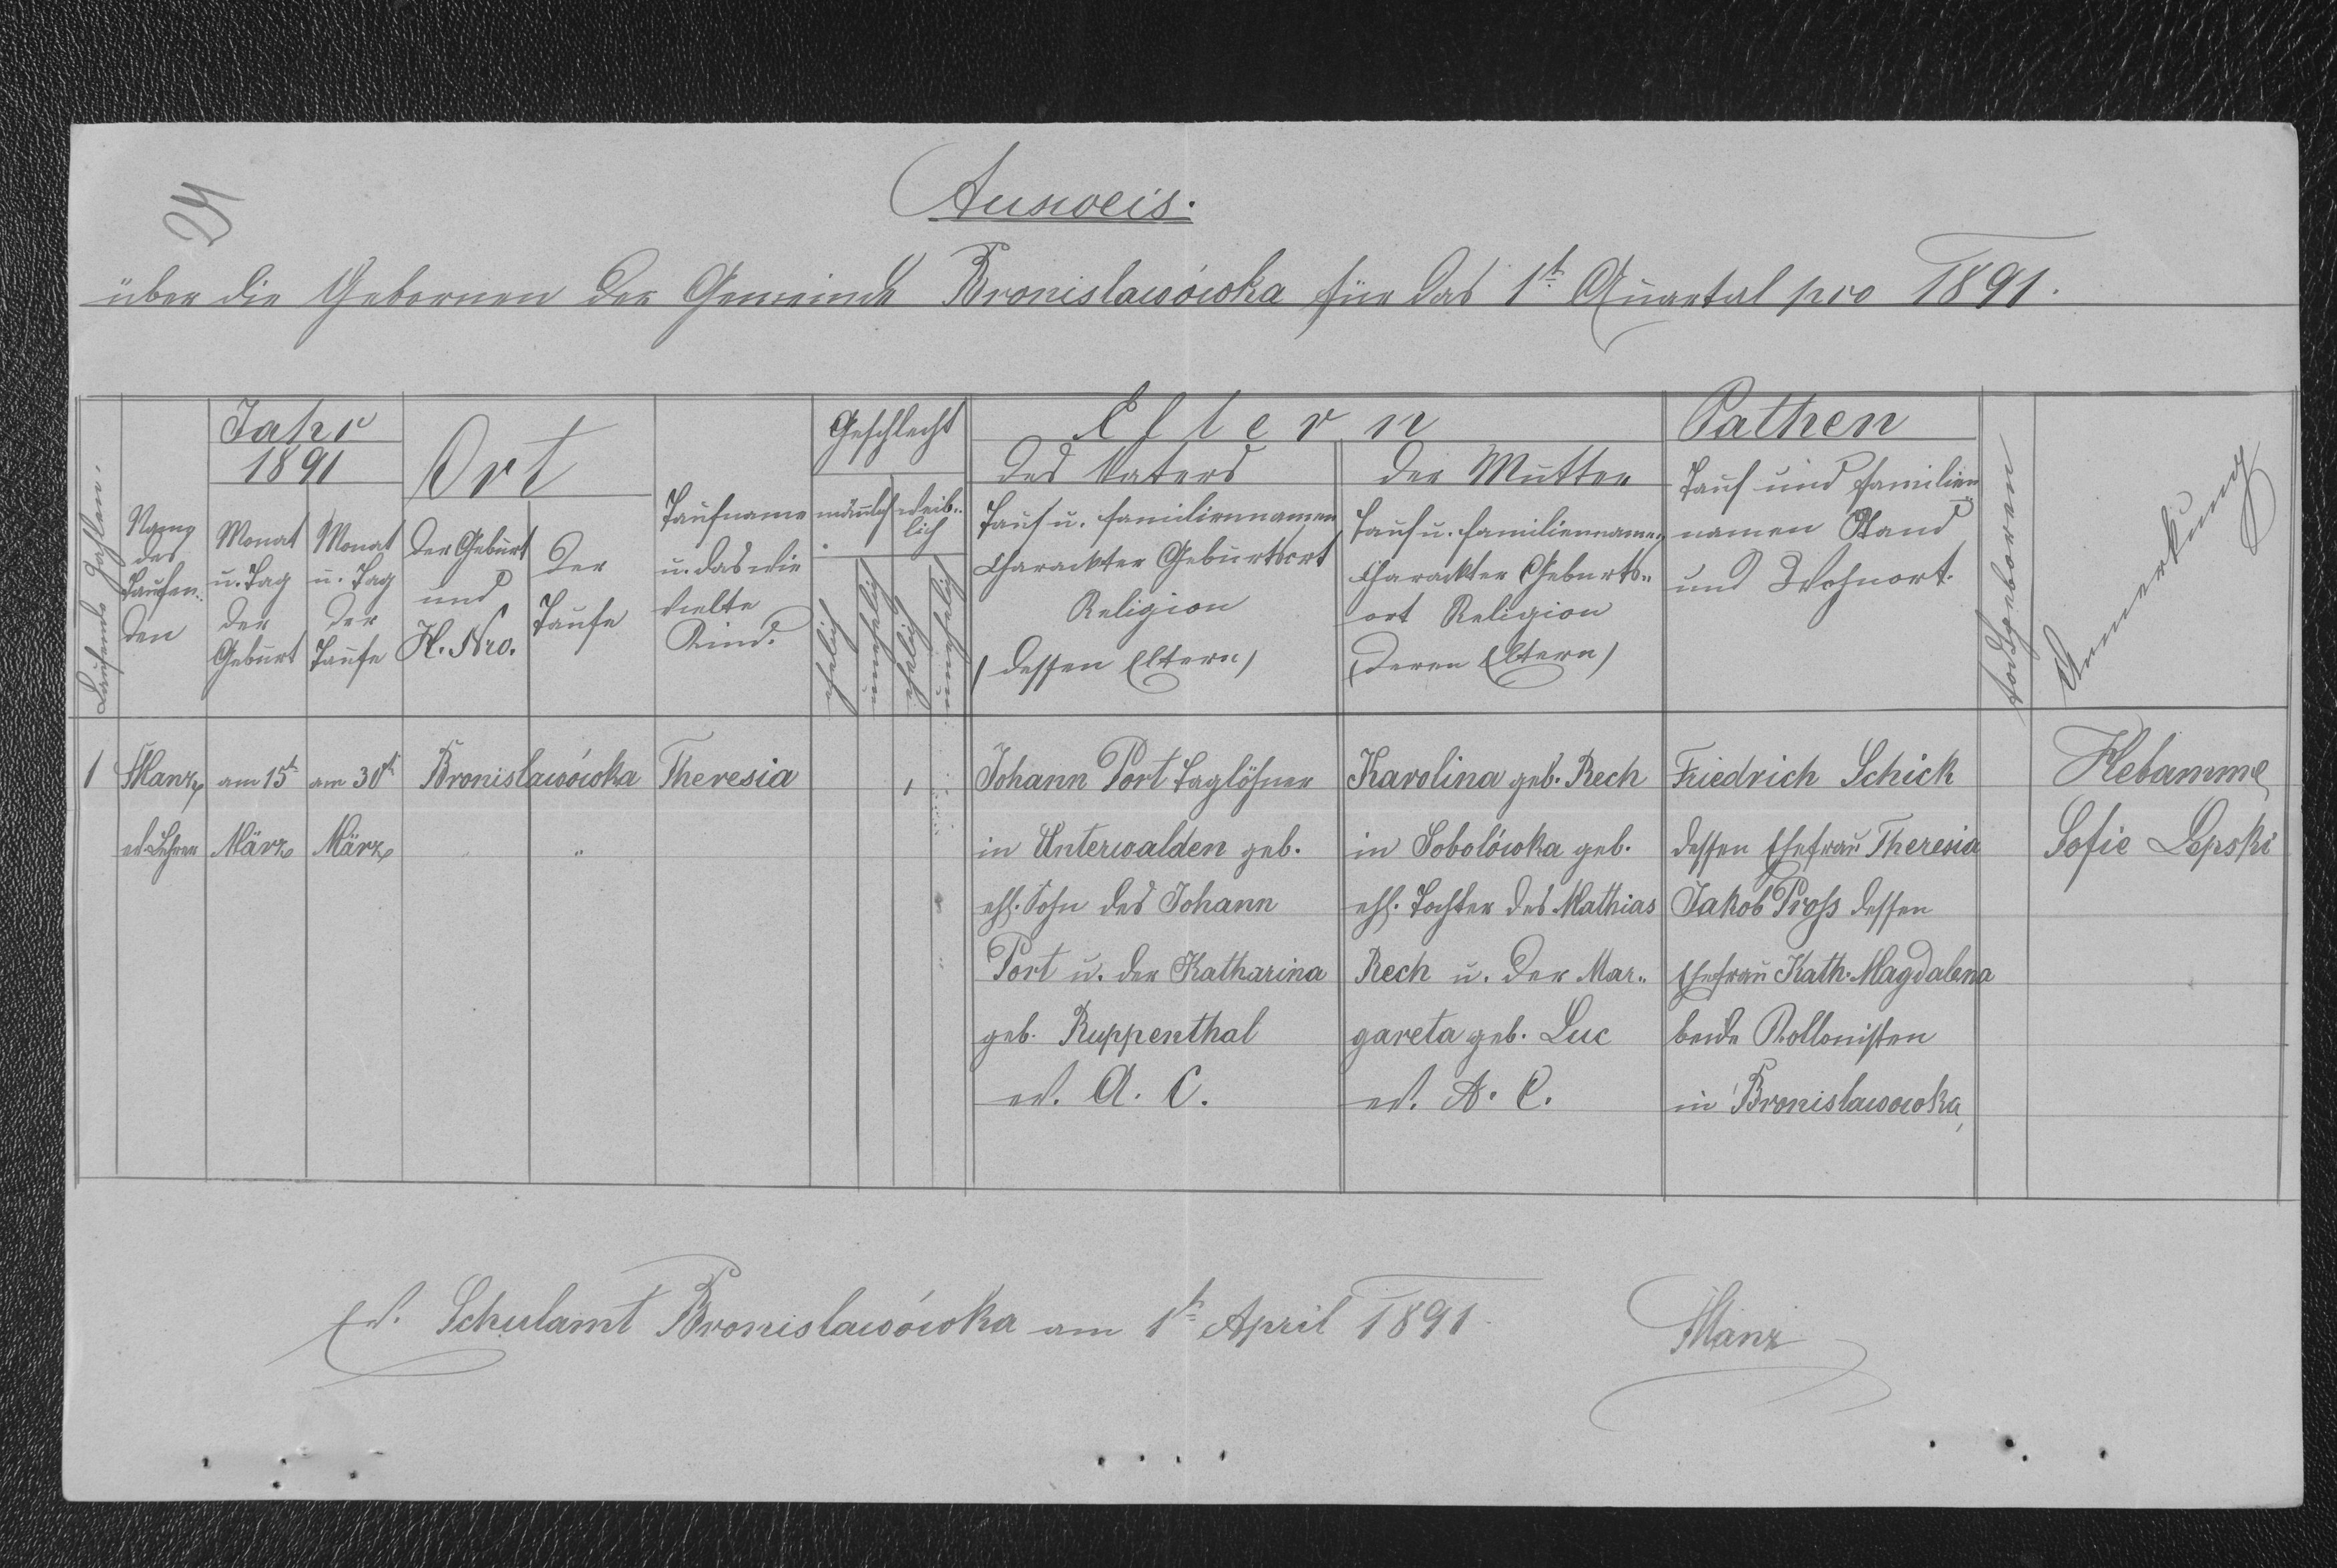 24
Ausweis.
über die Gebornen der Gemeinde Bronislawówka für das 1t Quartal pro 1891.
Laufende Zahlen.
Name
des
Taufen..
den
Jahr
1891
Monat
u. Tag
der
Geburt
Monat
u. Tag
der
Taufe
Ort
der Geburt
und
H. Nro.
der
Taufe
Taufname
u. das wie
vielte
Kind.
Geschlecht
männlich
weib..
lich
ehelich
unehelich
ehelich
unehelich
Eltern
des Vaters
Tauf u. Familiennamen
Charackter Geburtsort
Religion
(dessen Eltern)
der Mutter
Tauf u. Familienname..
Charackter Geburts..
ort Religion
(deren Eltern)
Pathen
Tauf und Familien
namen Stand
und Wohnort.
todtgeboren
Anmerkung
1 Manz am 15t am 30t Bronislawówka Theresia , Johann Port Taglöhner Karolina geb. Rech Friedrich Schick Hebamme
ev. Lehrer März März .. in Unterwalden geb. in Sobolówka geb. dessen Ehefrau Theresia Sofie Lepski
ehl. Sohn des Johann ehl. Tochter des Mathias Jakob Pross dessen
Port u. der Katharina Rech u. der Mar.. Ehefrau Kath. Magdalena
geb. Ruppenthal gareta geb. Luc beide Kollonisten
ev. A. C. ev. A. C. in Bronislawowka
Ev. Schulamt Bronislawówka am 1t April 1891.
Manz